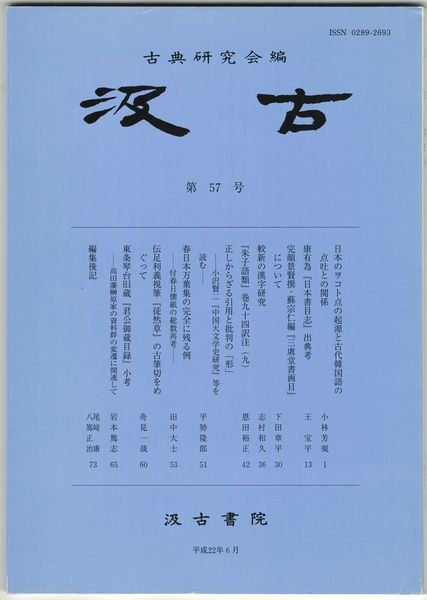 ISSN 0289-2693
古典研究会編
汲古
第 57 号
日本のヲコト点の起源と古代韓国語の
点吐との関係 小林芳規 1
康有為『日本書目志』出典考 王宝平 13
完顔景賢撰・蘇宗仁編『三虞堂書画目』
について 下田章平 30
較新の漢字研究 志村和久 36
『朱子語類』巻九十四訳注（九） 恩田裕正 42
正しからざる引用と批判の「形」
読む―
―小沢賢二『中国天文学史研究』等を 平勢隆郎 51
春日本万葉集の完全に残る例
―付春日懐紙の総数再考― 田中大士 53
伝足利義視筆『徒然草』の古筆切をめ
ぐって 舟見一哉 60
東条琴台旧蔵『君公御蔵目録』小考
―高田藩榊原家の資料群の変遷に関連して 岩本篤志 65
編集後記 尾﨑康
八嶌正治 73
汲古書院
平成22年6月